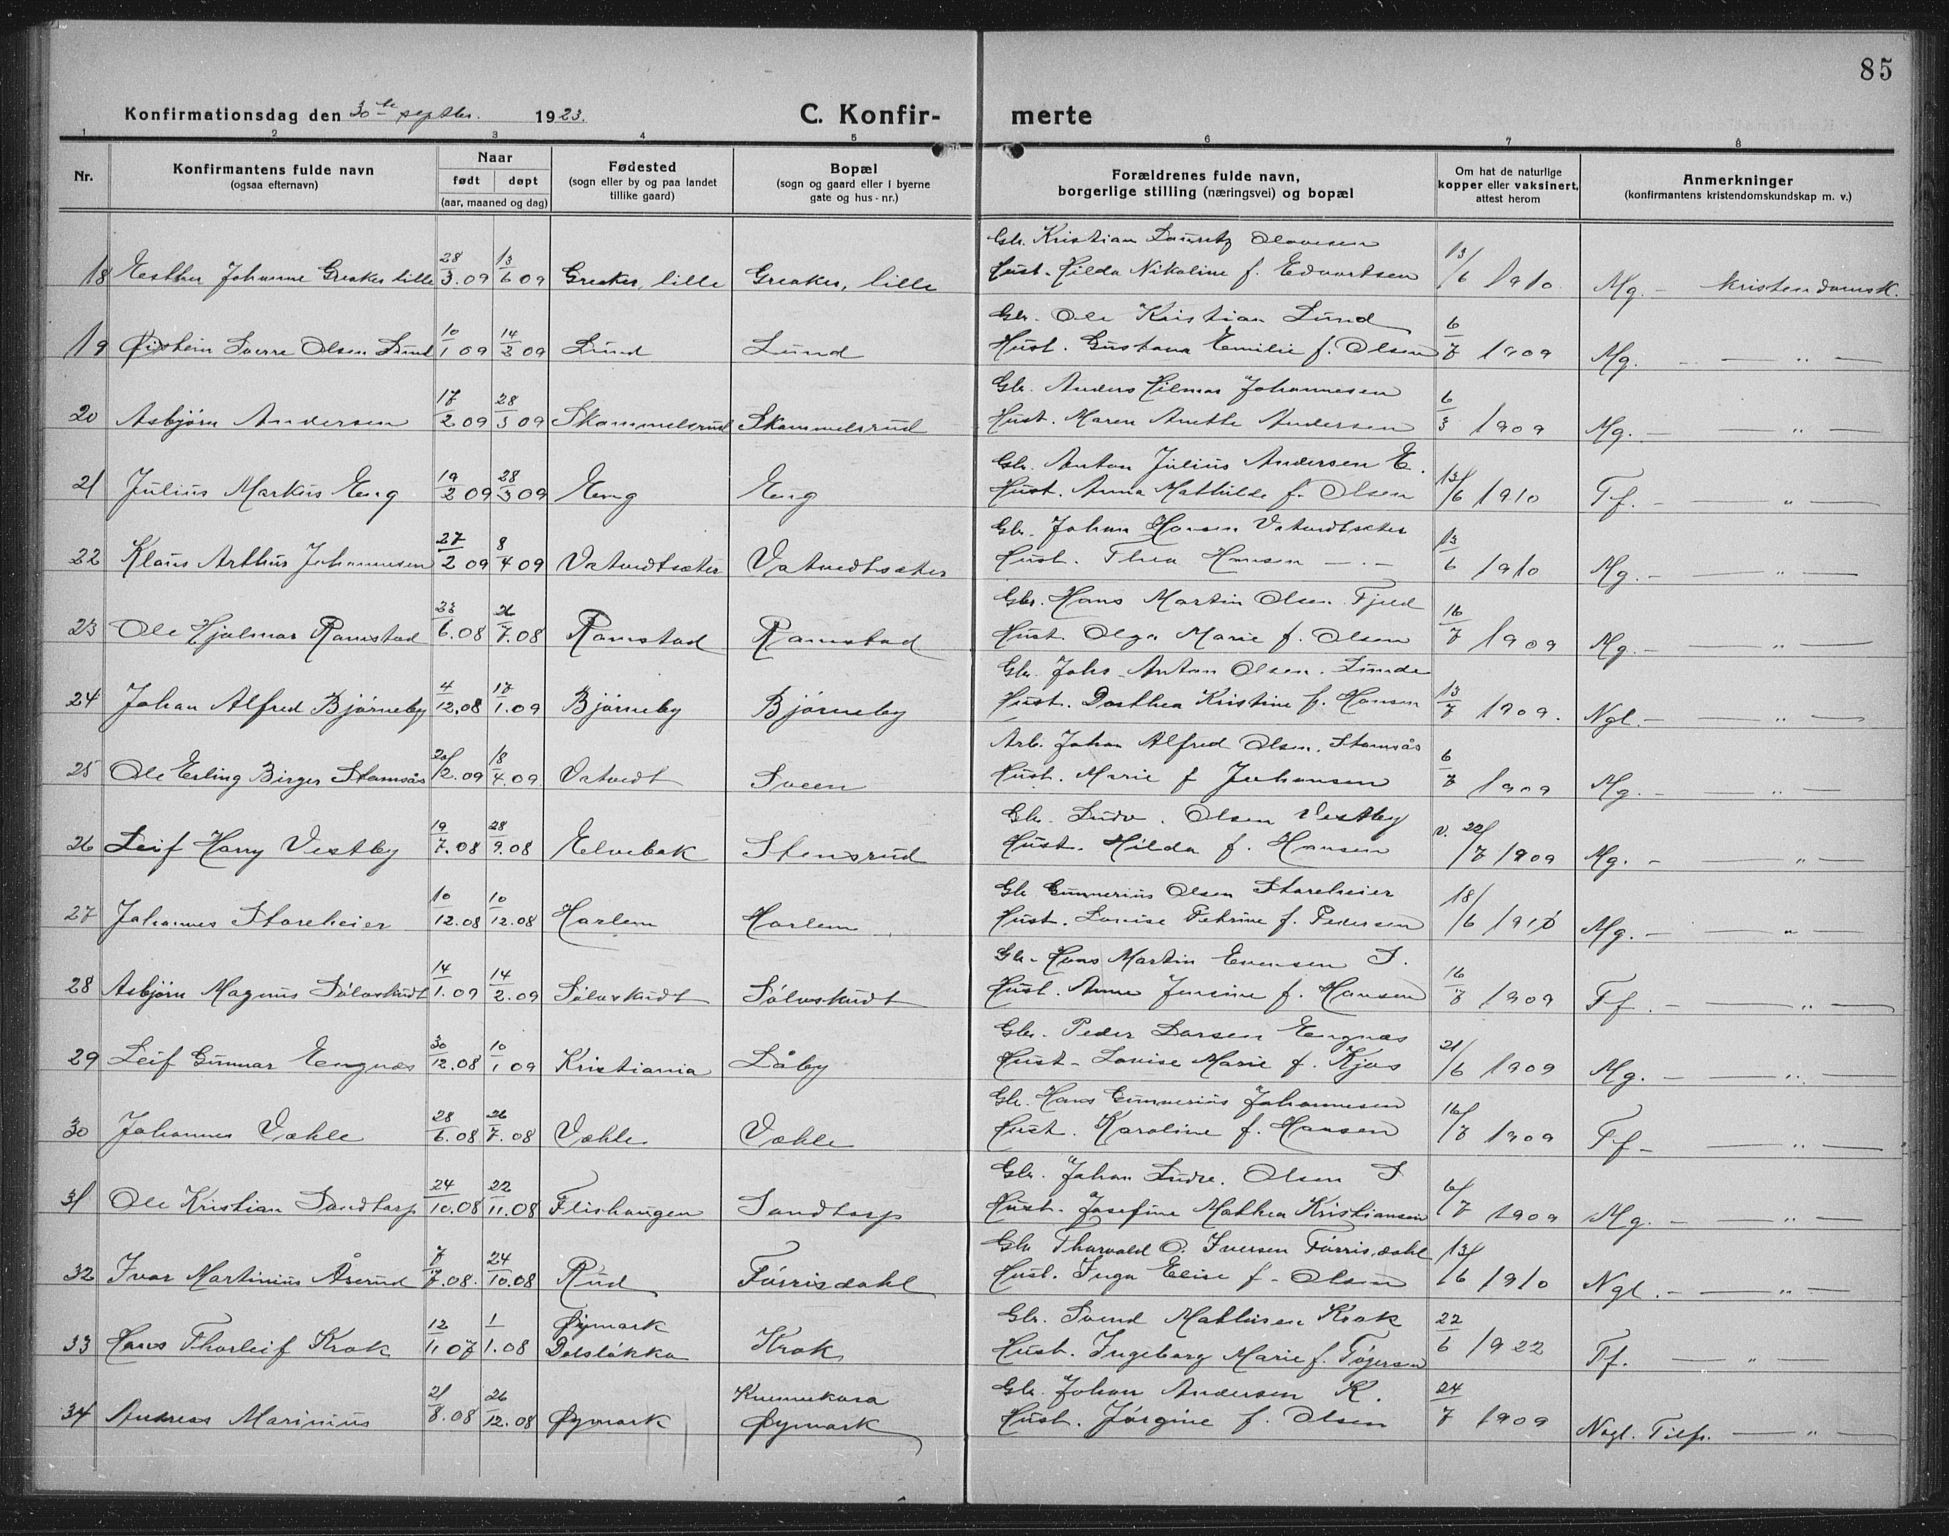 85
Konfirmationsdag den 30te septbr. 1923. C. Konfirmerte
1 2 3 4 5 6 7 8
Nr.
Konfirmantens fulde navn
(ogsaa efternavn)
Naar
født døpt
(aar, maaned og dag)
Fødested
(sogn eller by og paa landet
tillike gaard)
Bopæl
(sogn og gaard eller i byerne
gate og hus-nr.)
Forældrenes fulde navn,
borgerlige stilling (næringsvei) og bopæl
Om hat de naturlige
kopper eller vaksinert,
attest herom
Anmerkninger
(konfirmantens kristendomskundskap m. v.)
Gbr. Kristian Lauritz Olavesen
18 Esther Johanne Greaker lille 28/3.09 13/6 09 Greaker, lille Greaker, lille Hust. Hilda Nikoline f. Edvartsen 13/6 1910 Mg. - kristendomsk.
Gbr. Ole Kristian Lund
19 Øistein Sverre Olsen Lund 10/1 09 14/2 09 Lund Lund Hust. Gustava Emilie f. Olsen 6/7 1909 Mg. - — " —
Gbr. Anders Hilmar Johannesen
20 Asbjørn Andersen 17/2 09 28/3 09 Skammelsrud Skammelsrud Hust. Maren Anette Andersen 6/3 1909 Mg. - — " —
Gbr. Anton Julius Andersen E.
21 Julius Markus Eng 19/2 09 28/3 09 Eng Eng Hust. Anna Mathilde f. Olsen 13/6 1910 Tf. - — " —
Gbr. Johan Hansen Vatvedtsæter
22 Klaus Arthur Johannesen 27/2 09 8/4 09 Vatvedtsæter Vatvedtsæter Hust. Thea Hansen — . — 13/6 1910 Mg. - — " —
Gbr. Hans Martin Olsen Fjeld
23 Ole Hjalmar Ramstad 23/6.08 26/7.08 Ramstad Ramstad Hust. Olga Marie f. Olsen 16/7 1909 Mg. - — " —
Gbr. Johs. Anton Olsen. Lunde
24 Johan Alfred Bjørneby 4/12.08 17/1.09 Bjørneby Bjørneby Hust. Dorthea Kristine f. Hansen 13/7 1909. Ngl. - — " —
Arb. Johan Alfred Olsen. Stomsås
25 Ole Erling Birger Stomsås 20/2.09 18/4.09 Vatvedt Sveen Hust. Marie f Johansen 6/7 1909 Mg. - — " —
Gbr. Ludv. Olsen Vestby
26 Leif Harry Vestby 19/7.08 28/9.08 Elvebak Stensrud Hust. Hilda f. Hansen v. 22/7 1909 Mg. - — " —
Gbr Gunnerius Olsen Storeheier
27 Johannes Storeheier 10/12.08 10/12.08 Harlem Harlem Hust. Lovise Petrine f. Pedersen 18/6 1910 Mg. - — " —
Gbr. Hans Martin Evensen S.
28 Asbjørn Magnus Sølvskudt 14/1.09 14/2.09 Sølvskudt Sølvskudt Hust. Anne Jensine f. Hansen 16/7 1909 Tf. - — " —
Gbr. Peder Larsen Engnæs
29 Leif Gunnar Engnæs 30/12.08 10/1 09 Kristiania Låby Hust. Lovise Marie f. Kjos 21/6 1909 Mg. - — " —
Gbr. Hans Gunnerius Johannesen
30 Johannes Væhle 28/6.08 26/7.08 Væhle Væhle Hust. Karoline f. Hansen 16/7 1909 Tf - — " —
Gbr. Johan Ludv. Olsen S
31 Ole Kristian Sandtorp 24/10.08 22/11.08 Flishaugen Sandtorp Hust. Josefine Mathea Kristiansen 6/7 1909 Mg. - — " —
Gbr Thorvald O. Iversen Førrisdahl
32 Ivar Martinius Åserud 7/7.08. 24/10.08 Rud Førrisdahl Hust. Inga Elise f. Olsen 13/6 1910 Ngl. - — " —
Øymark Gbr. Svend Mathisen Krok
33 Hans Thorleif Krok 12/11 07 1/1.08 Dalsløkka Krok Hust. Ingeborg Marie f. Tøgersen 22/6 1922 Tf. — " —
Gbr. Johan Andersen K.
34 Andreas Marinius 21/8.08 26/12.08 Øymark Øymark Hust. Jørgine f. Olsen 24/7 1909 Nogl. Tilfr. — " —